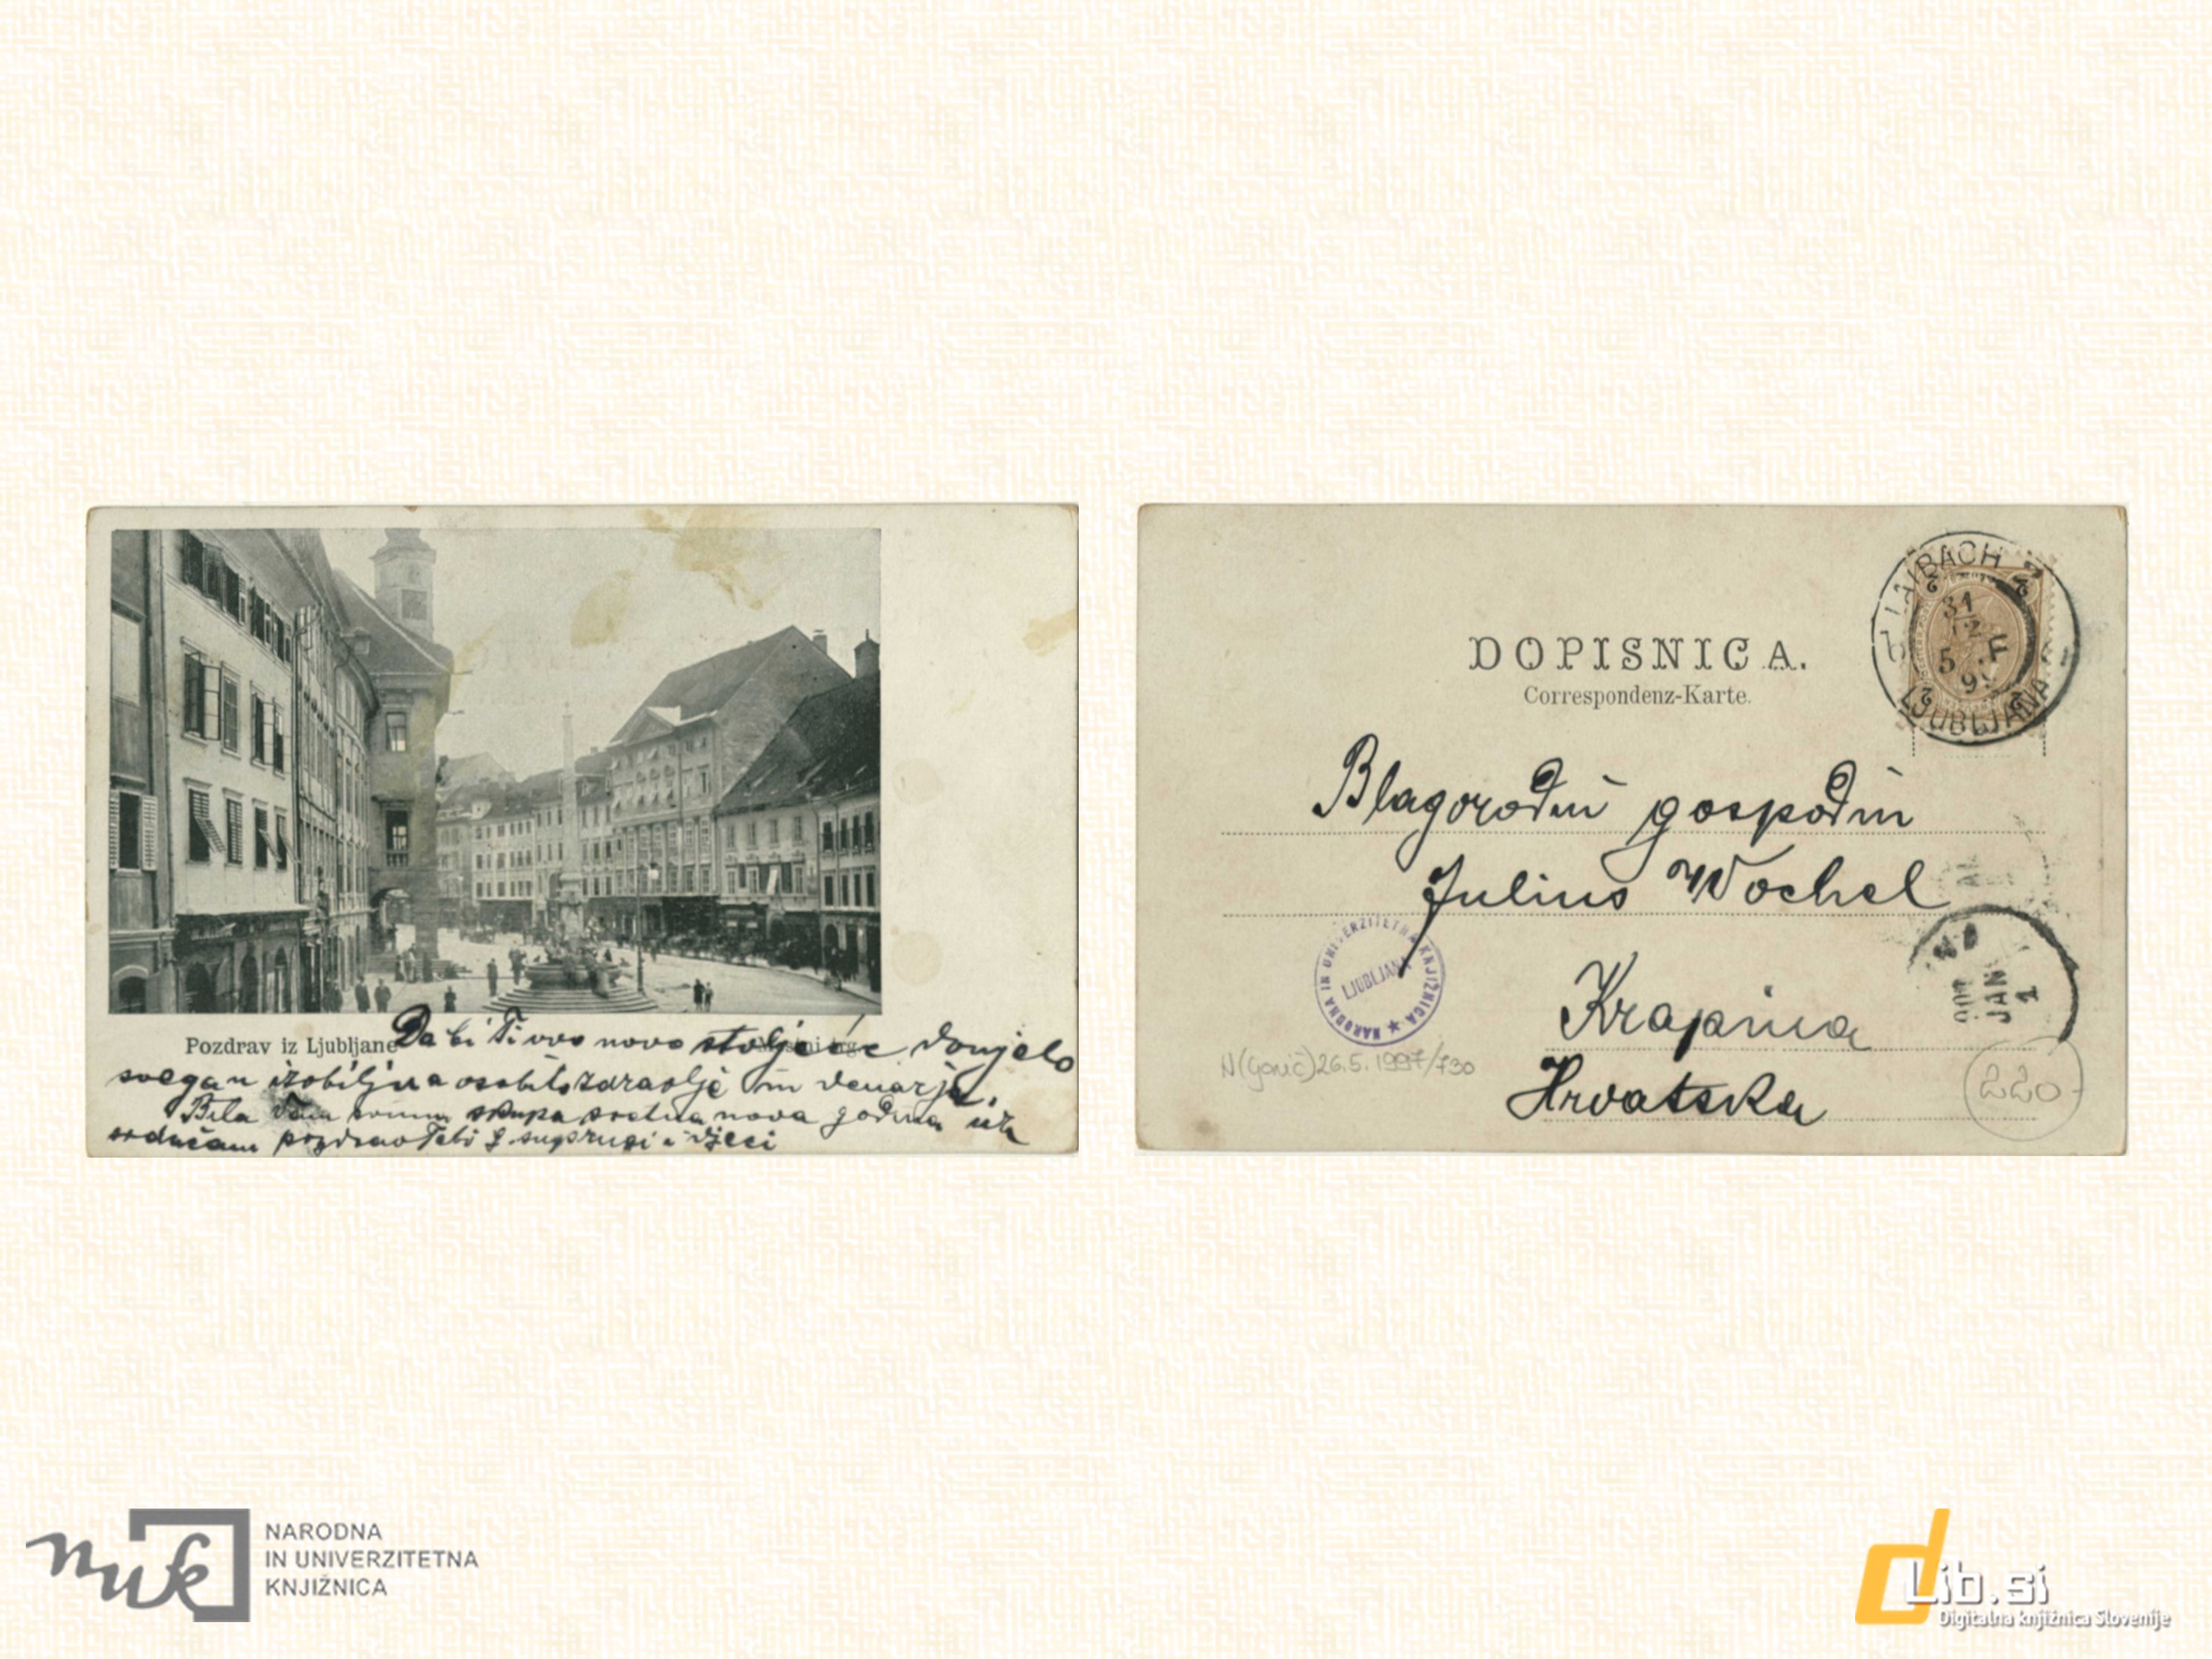 Pozdrav iz Ljubljane
Da bi Ti ovo novo stoljeće donjelo
svega u izobilju a osobito zdravlje in denarja.
Bila Vam svima skupa sretna nova godina uz
srdačan pozdrav Tebi g. supruzi i djeci
DOPISNICA.
Correspondenz-Karte.
LAIBACH
31
12
5 F
LJUBLJANA
Blagorodni gospodin
Julius Wochel
Krapina
Hrvatska
NARODNA IN UNIVERZITETNA KNJIŽNICA ★
LJUBLJANA
900
JAN
1
N(Gorič)26.5.1997/730
220.-
nuk
NARODNA
IN UNIVERZITETNA
KNJIŽNICA
dLib.si
Digitalna knjižnica Slovenije